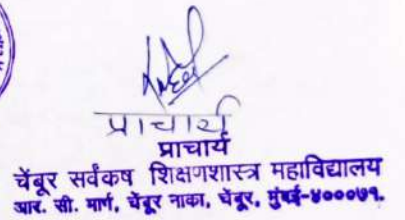 प्राचार्य
प्राचार्य
चेंबूर सर्वंकष शिक्षणशास्त्र महाविद्यालय
आर. सी. मार्ग, चेंबूर नाका, चेंबूर, मुंबई-४०००७१.